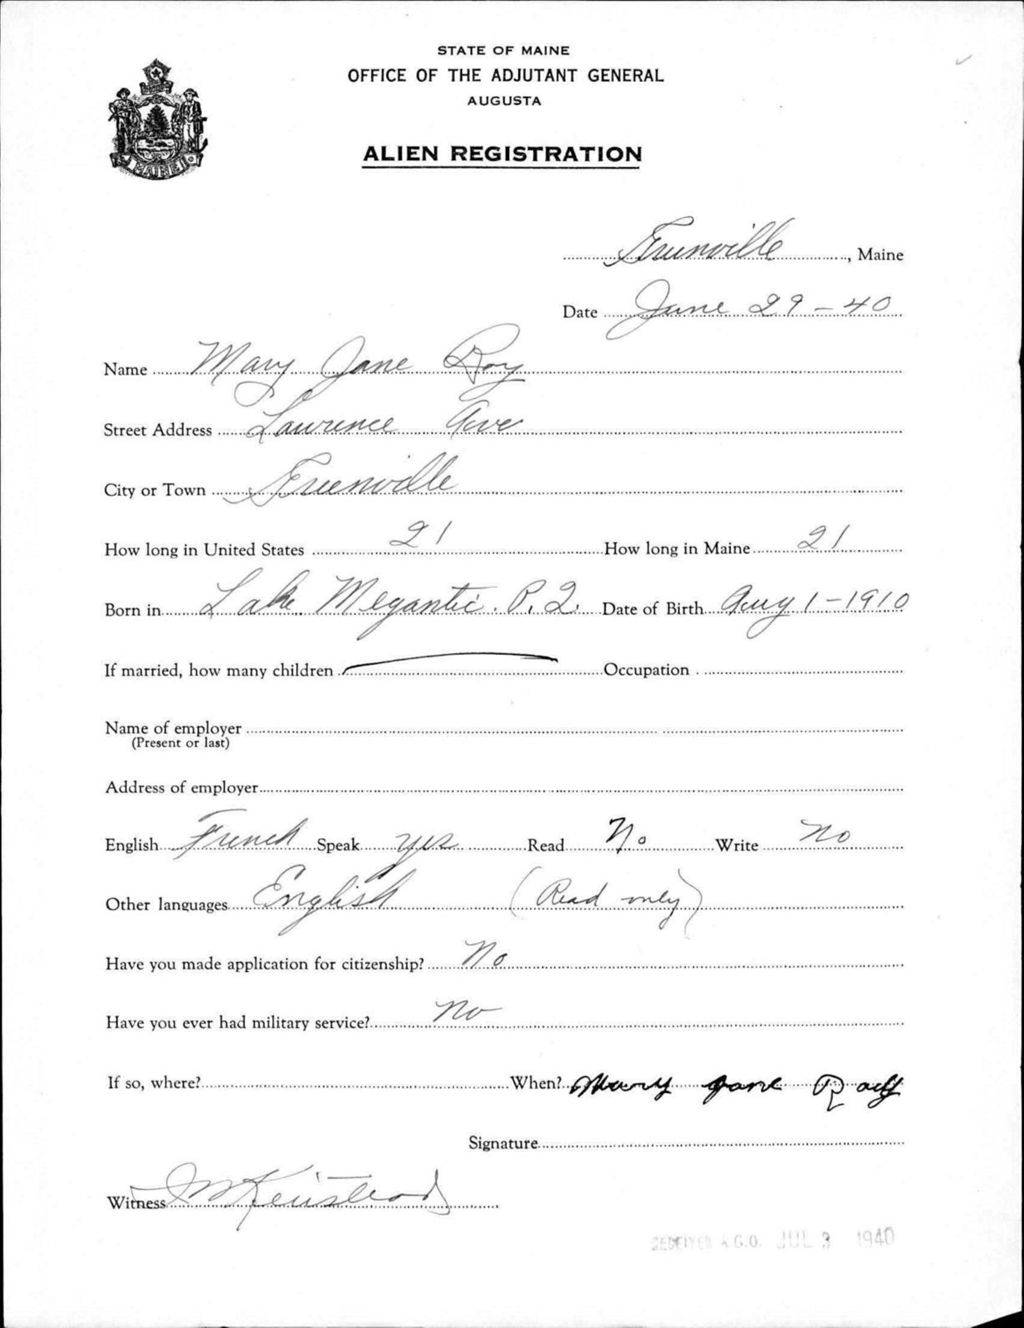 STATE OF MAINE
OFFICE OF THE ADJUTANT GENERAL
AUGUSTA
MAINE
ALIEN REGISTRATION
Greenville, Maine
Date June 29-40
Name Mary Jane Roy
Street Address Lawrence Ave
City or Town Greenville
How long in United States 21 How long in Maine 21
Born in Lake Megantic. P.Q. Date of Birth Aug 1-1910
If married, how many children Occupation
Name of employer
(Present or last)
Address of employer
English French Speak yes Read No Write No
Other languages English (Read only)
Have you made application for citizenship? No
Have you ever had military service? No
If so, where? When? Mary Jane Roy
Signature
Witness
RECEIVED A.G.O. JUL 3 1940